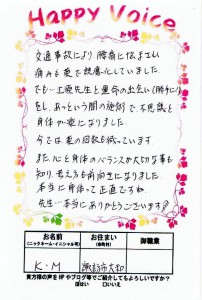 Happy Voice
交通事故により腰痛に悩まされ
痛みも楽で鈍痛化していました。
でも…上原先生と運命の出会い(勝手に)
をし、あっという間の施術で、不思議と
身体が楽になりました。
今では薬の回数も減っています
また心と身体のバランスが大切な事も
知り、考え方も前向きになりました
本当に身体って正直ですね。
先生…本当にありがとうございます
お名前
(ニックネーム・イニシャル可)
お住まい
(市町村)
御職業
K・M
諏訪市大和
貴方様の声をHPやブログ等でご紹介してもよろしいですか?
はい □いいえ